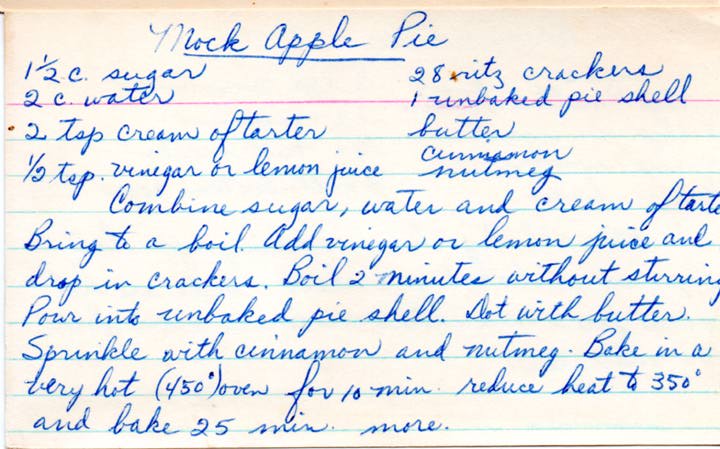 Mock Apple Pie
1½ c. sugar 28 ritz crackers
2 c. water 1 unbaked pie shell
2 tsp cream of tarter butter
cinnamon
½ tsp. vinegar or lemon juice nutmeg
Combine sugar, water and cream of tarte
Bring to a boil. Add vinegar or lemon juice and
drop in crackers. Boil 2 minutes without stirring
Pour into unbaked pie shell. Dot with butter.
Sprinkle with cinnamon and nutmeg. Bake in a
very hot (450°) oven for 10 min. reduce heat to 350°
and bake 25 min. more.